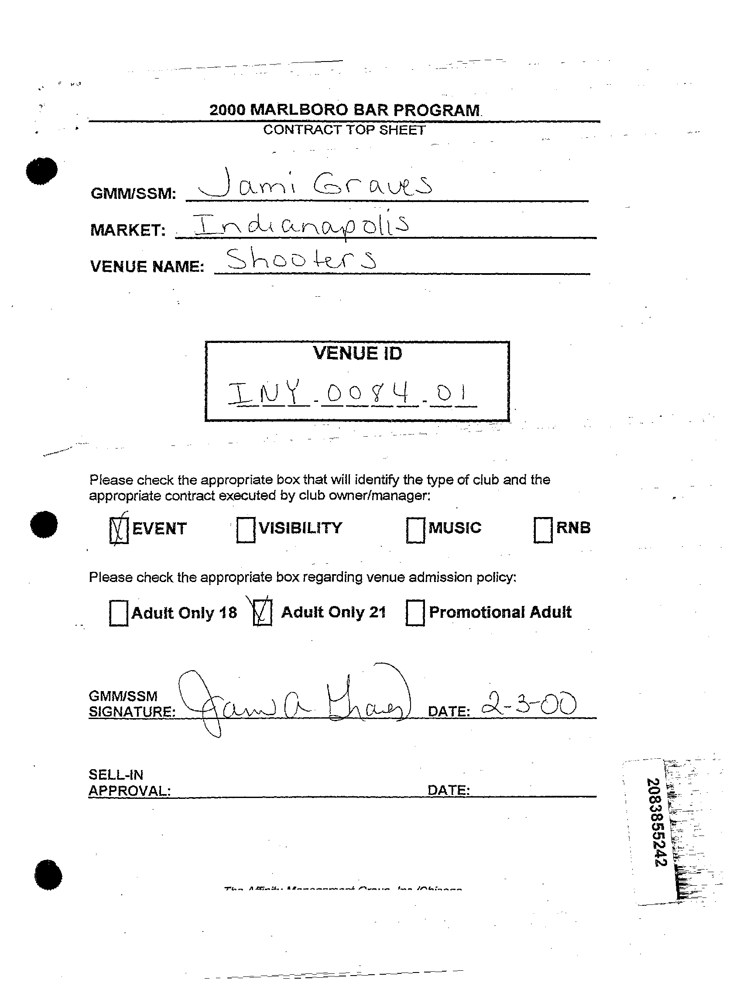 2000 MARLBORO BAR PROGRAM
CONTRACT TOP SHEET
GMM/SSM: Jami Graves
MARKET: Indianapolis
VENUE NAME: Shooters
VENUE ID
INY.0084.01
Please check the appropriate box that will identify the type of club and the
appropriate contract executed by club owner/manager:
EVENT VISIBILITY MUSIC RNB
Please check the appropriate box regarding venue admission policy:
Adult Only 18 Adult Only 21 Promotional Adult
GMM/SSM
SIGNATURE: Jami A Graves DATE: 2-3-00
SELL-IN
APPROVAL: DATE:
2083855242